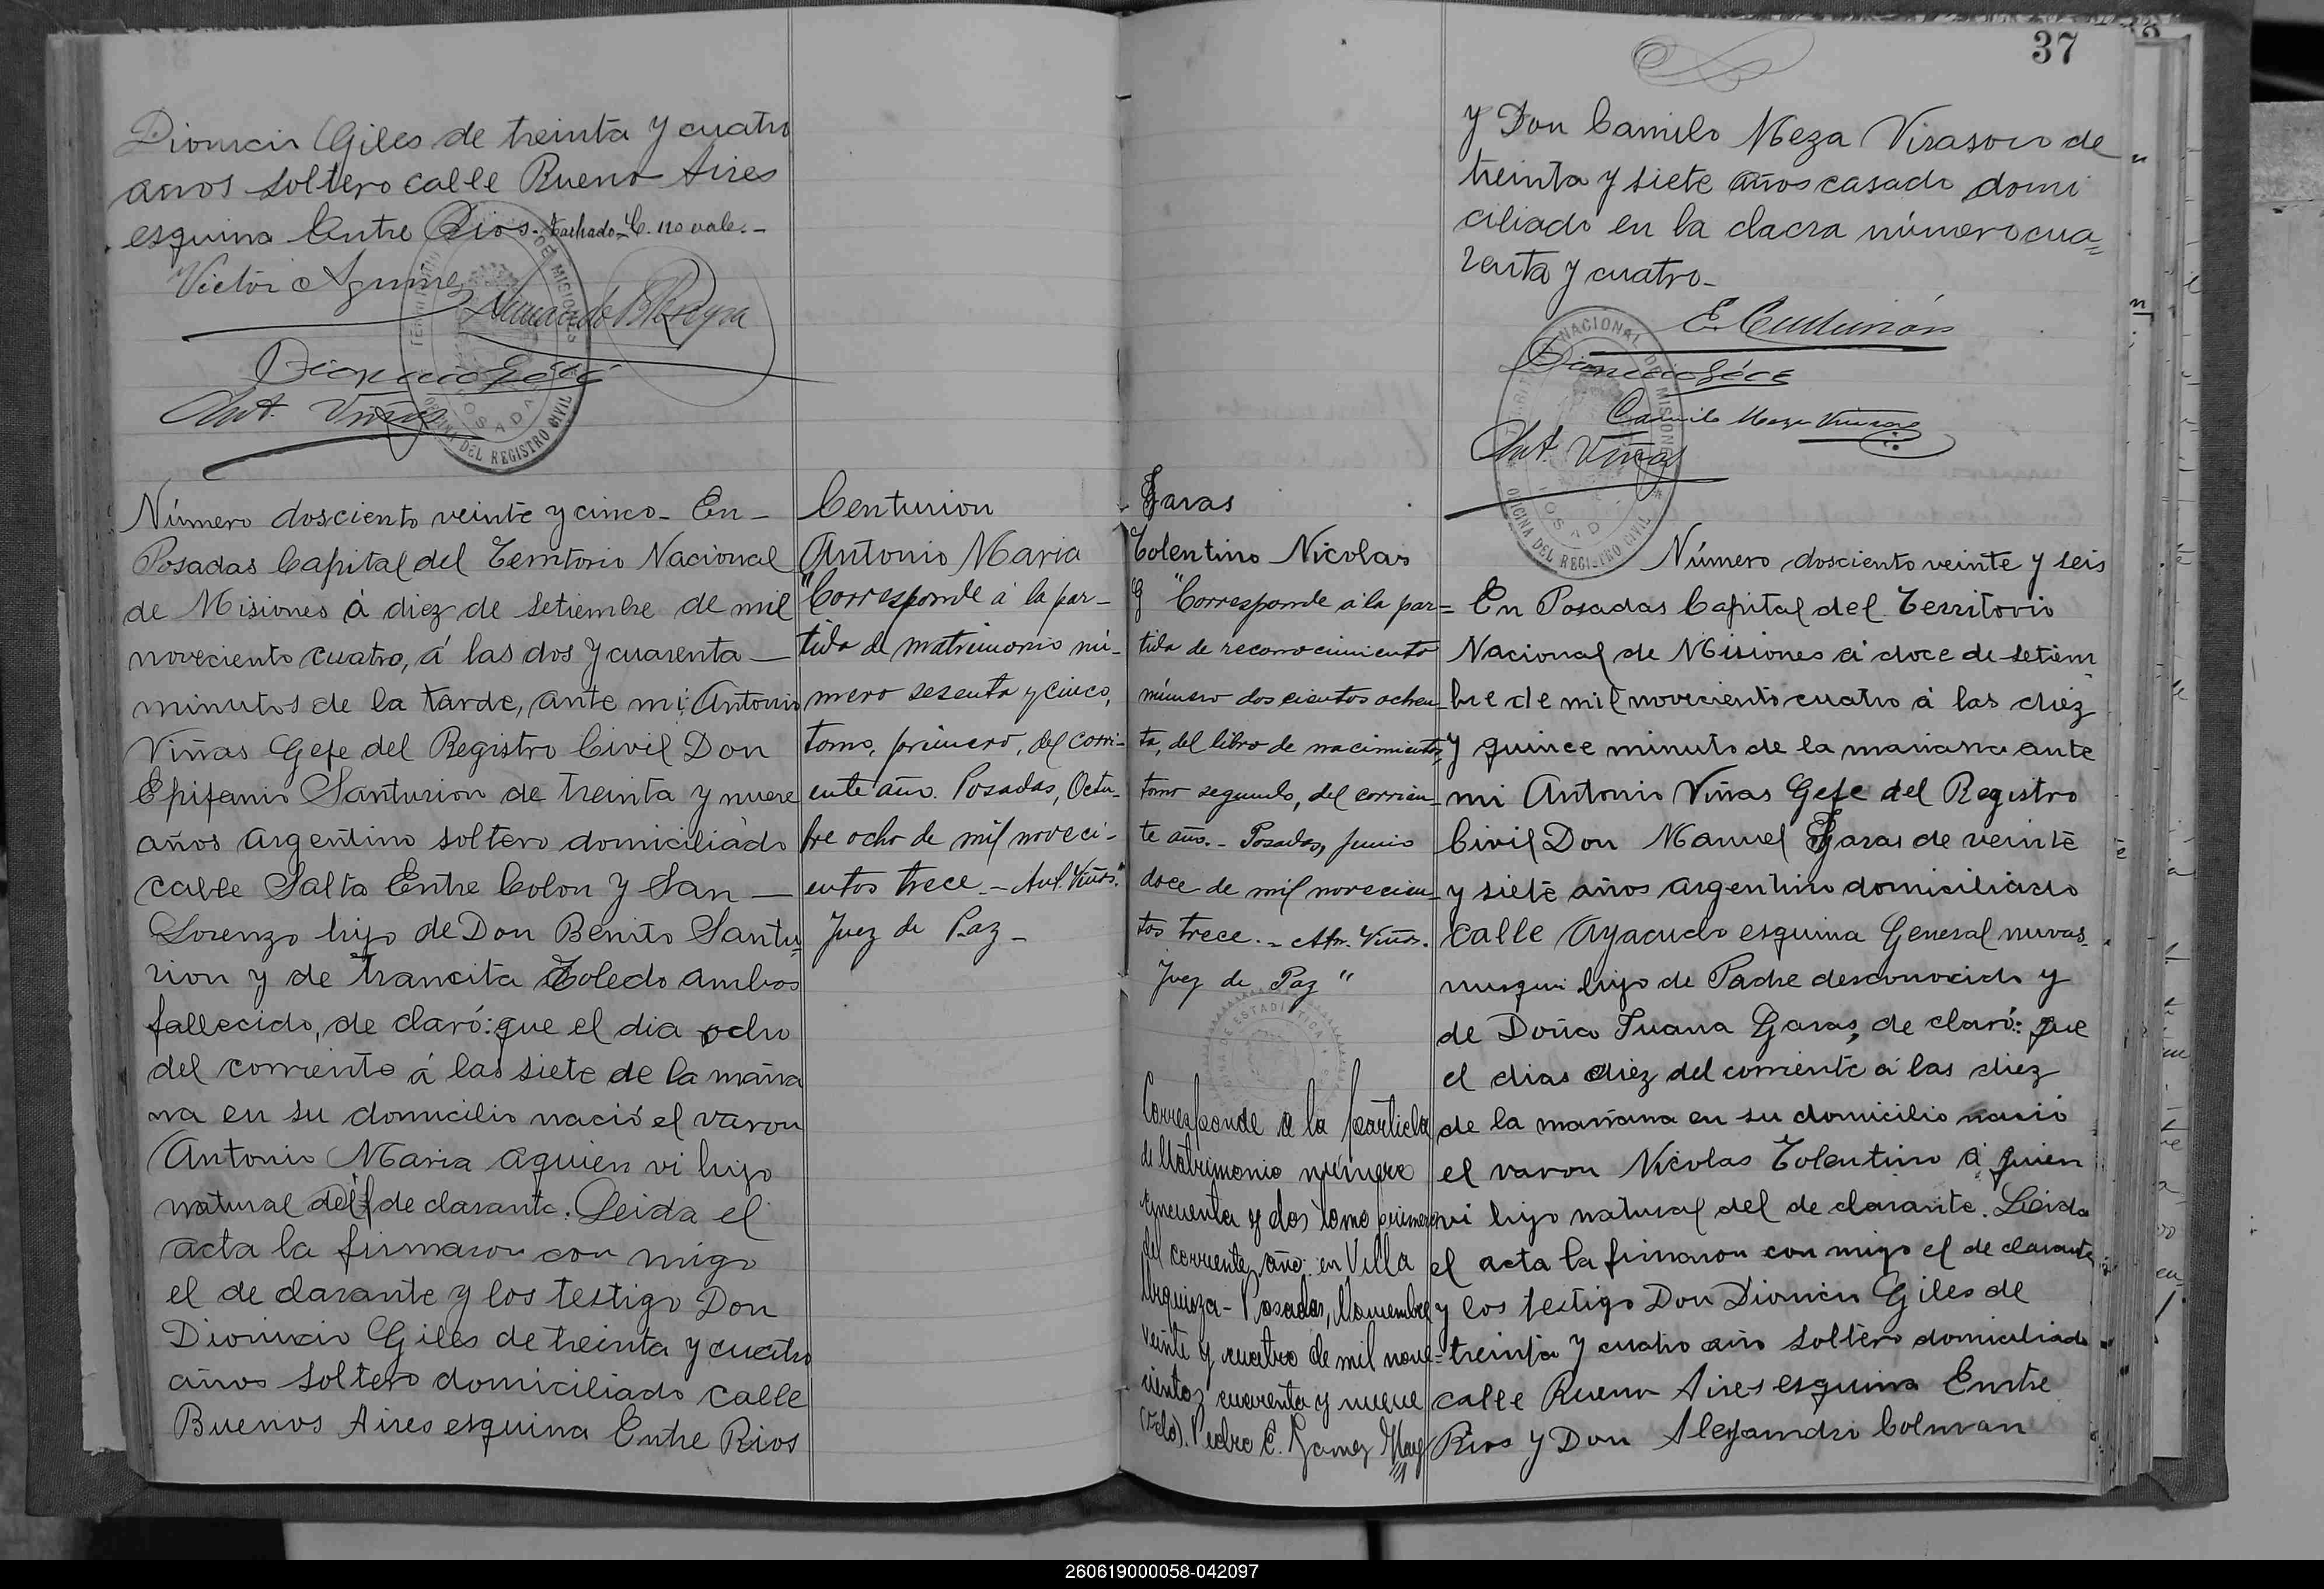 Dionicio Giles de treinta y cuatro
anos soltero calle Bueno Aires
esquina Entre Rios. Tachado-C. no vale.-
Victor Aguirre
Ant. Viñas
Número dosciento veinte y cinco- En-
Posadas Capital del Territorio Nacional
de Misiones á diez de setiembre de mil
noveciento cuatro, á las dos y cuarenta-
minutos de la tarde, ante mi Antonio
Viñas Gefe del Registro Civil Don
Epifanio Santurion de treinta y nueve
años argentino soltero domiciliado
calle Salta Entre Colon y San-
Lorenzo hijo de Don Benito Santu=
rion y de trancita Toledo ambos
fallecido, de claró: que el dia ocho
del corriente á las siete de la maña
na en su domicilio nació el varon
Antonio Maria aquien vi hijo
natural del de clarante. Leida el
acta la firmaron con migo
el de clarante y los testigo Don
Dionicio Giles de treinta y cuatro
años soltero domiciliado calle
Buenos Aires esquina Entre Rios
Centurion
Antonio Maria
"Corresponde á la par-
tida de matrimonio nú-
mero sesenta y cinco,
tomo, primero, del corri-
ente año. Posadas, Octu-
bre ocho de mil noveci-
entos trece.- Ant. Viñas."
Juez de Paz-
Garas
Tolentino Nicolas
"Corresponde á la par=
tida de reconocimiento
número dos cientos ochen-
ta, del libro de nacimientos,
tomo segundo, del corrien-
te año.- Posadas, junio
doce de mil novecien-
tos trece.- Ant. Viñas.
Juez de Paz"
Corresponde a la partida
de Matrimonio número
cincuenta y dos tomo primero
del corriente año en Villa
Urquiza- Posadas, Noviembre
veinte y cuatro de mil nove=
cientos cuarenta y nueve
Pedro E. Gomez
37
y Don Camilo Meza Virasoro de
treinta y siete años casado domi
ciliado en la clacra número cua=
renta y cuatro-
E. Centurión
Camilo Meza Virasoro
Ant. Viñas
TERRITORIO NACIONAL DE MISIONES
POSADAS
OFICINA DEL REGISTRO CIVIL
Número dosciento veinte y seis
En Posadas Capital del Territorio
Nacional de Misiones á doce de setiem
bre de mil noveciento cuatro á las diez
y quince minuto de la mañana ante
mi Antonio Viñas Gefe del Registro
Civil Don Manuel Garas de veinte
y siete años argentino domiciliado
calle Ayacucho esquina General
hijo de Padre desconocido y
de Doña Juana Garas, de claró: que
el dias diez del corriente á las diez
de la mañana en su domicilio nació
el varon Nicolas Tolentino á quien
vi hijo natural del de clarante. Leida
el acta la firmaron con migo el de clarante
y los testigo Don Dionicio Giles de
treinta y cuatro año soltero domiciliado
calle Bueno Aires esquina Entre
Rios y Don Alejandro Colman
260619000058-042097